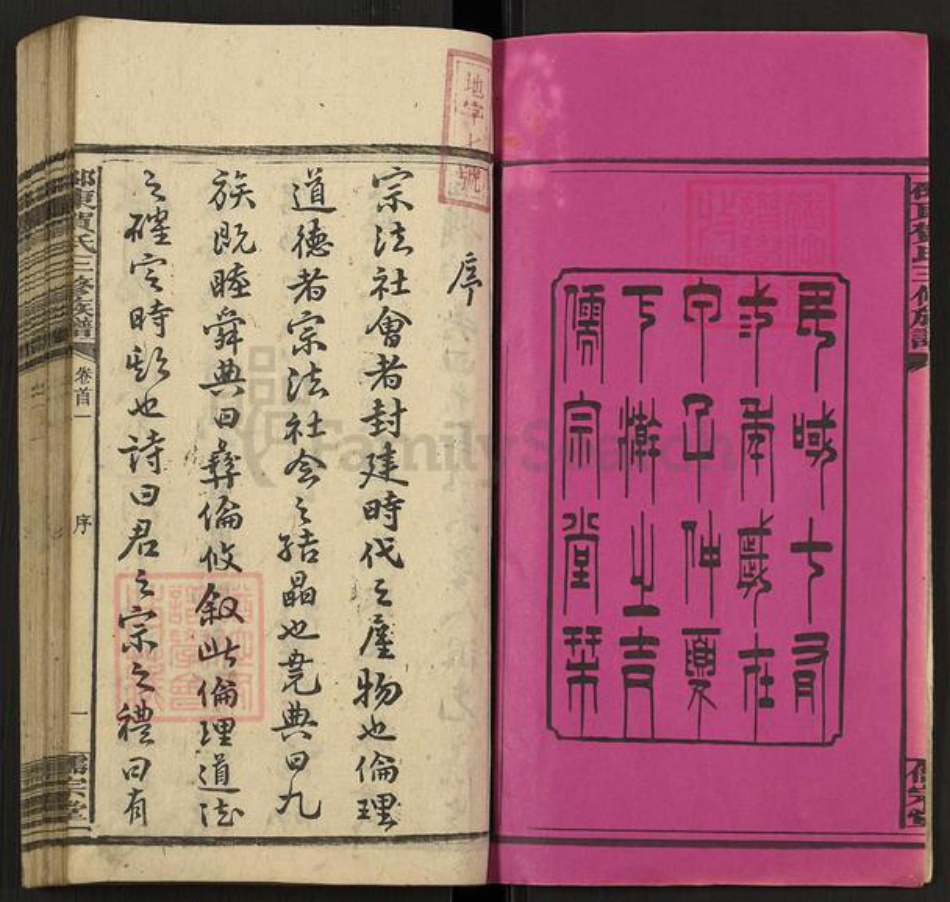 民國十有
三年歲在
甲子仲夏
下澣之吉
儒宗堂栞
地字七號
序
宗法社會者封建時代之產物也倫理
道德者宗法社会之结晶也堯典曰九
族既睦舜典曰彝倫攸叙此倫理道德
之確定時期也詩曰君之宗之禮曰有
賀氏三修族譜 卷首一 序 一 儒宗堂
FamilySearch